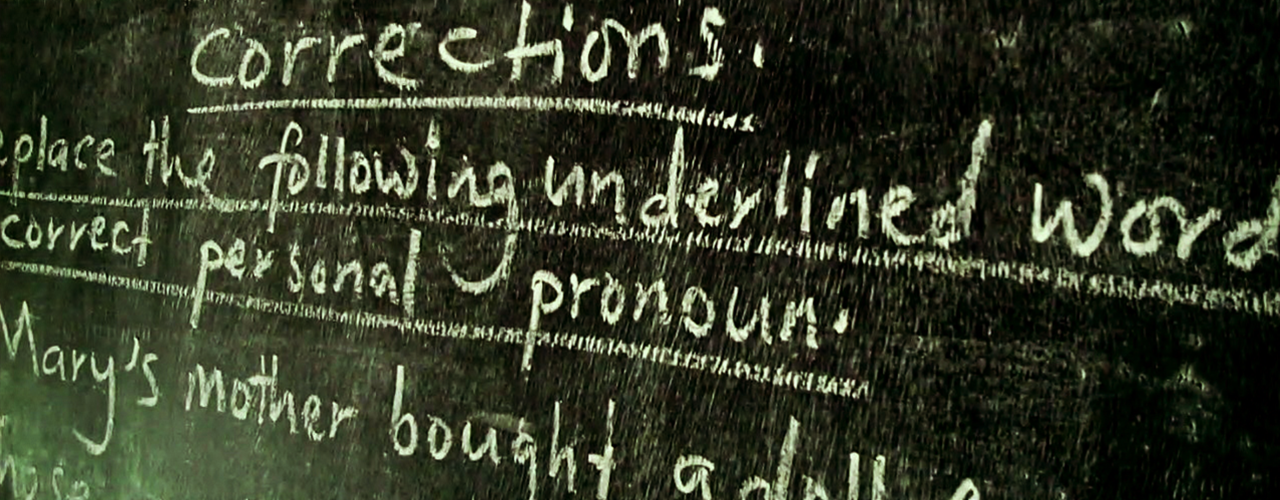 corrections.
eplace the following underlined word
correct personal pronoun.
Mary's mother bought a doll